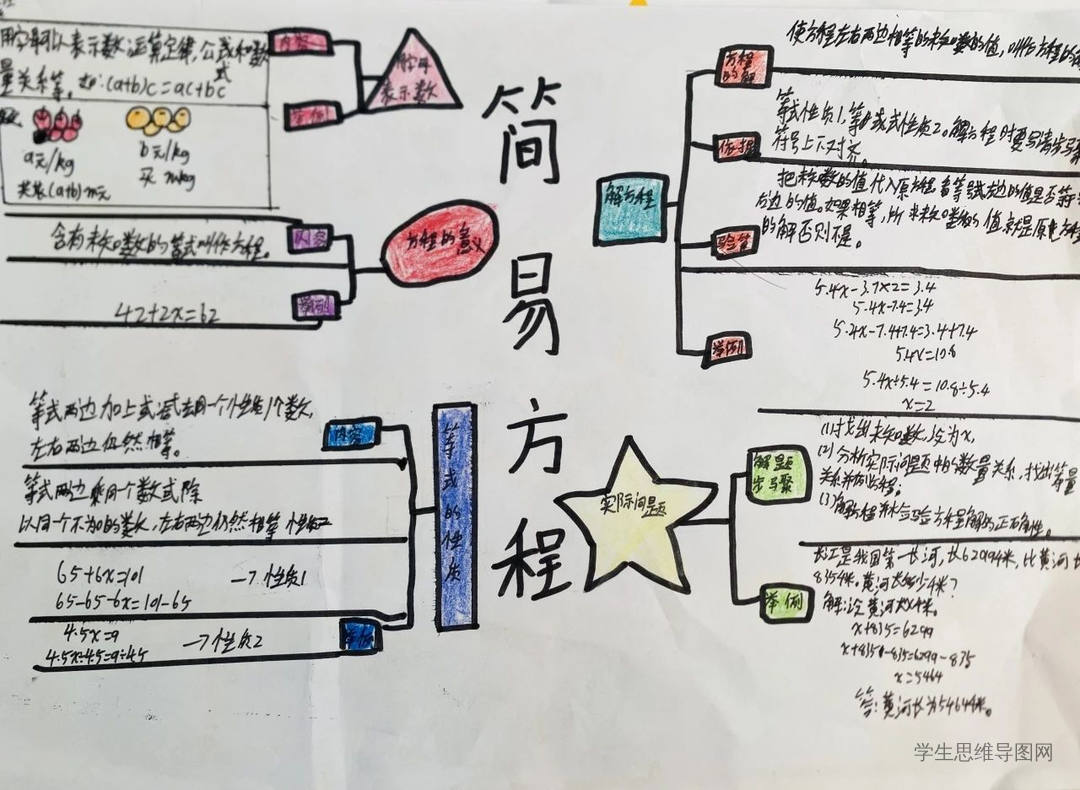 用字母可以表示数,运算定律,公式和数
量关系等,如:(a+b)c=ac+bc
内容
举例
用字母
表示数
a元/kg
b元/kg
买mkg
共花(a+b)m元
含有未知数的等式叫作方程。
内容
方程的意义
举例
42+2x=62
简易方程
等式两边加上或减去同一个数,
左右两边仍然相等。
内容
等式两边乘同一个数或除
以同一个不为0的数,左右两边仍然相等 性质2
65+6x=101 → 性质1
65-65-6x=101-65
4.5x=9
4.5x÷4.5=9÷4.5 → 性质2
举例
等式的性质
使方程左右两边相等的未知数的值,叫作方程的
方程
的解
等式性质1,等式性质2。解方程时要写清步骤
符号上下对齐。
依据
解方程
把未知数的值代入原方程看等式左边的值是否等于
右边的值。如果相等,所求未知数的值就是原方程
的解否则不是。
验算
5.4x-3.7×2=3.4
5.4x-7.4=3.4
5.4x-7.4+7.4=3.4+7.4
5.4x=10.8
5.4x÷5.4=10.8÷5.4
x=2
举例
实际问题
解题
步骤
(1)找出未知数,设为x,
(2)分析实际问题中的数量关系,找出等量
关系并列方程;
解方程并检验方程解的正确性。
举例
长江是我国第一长河,长6299千米,比黄河长
835千米。黄河长多少千米?
解:设黄河长x千米。
x+835=6299
x+835-835=6299-835
x=5464
答:黄河长为5464千米。
学生思维导图网